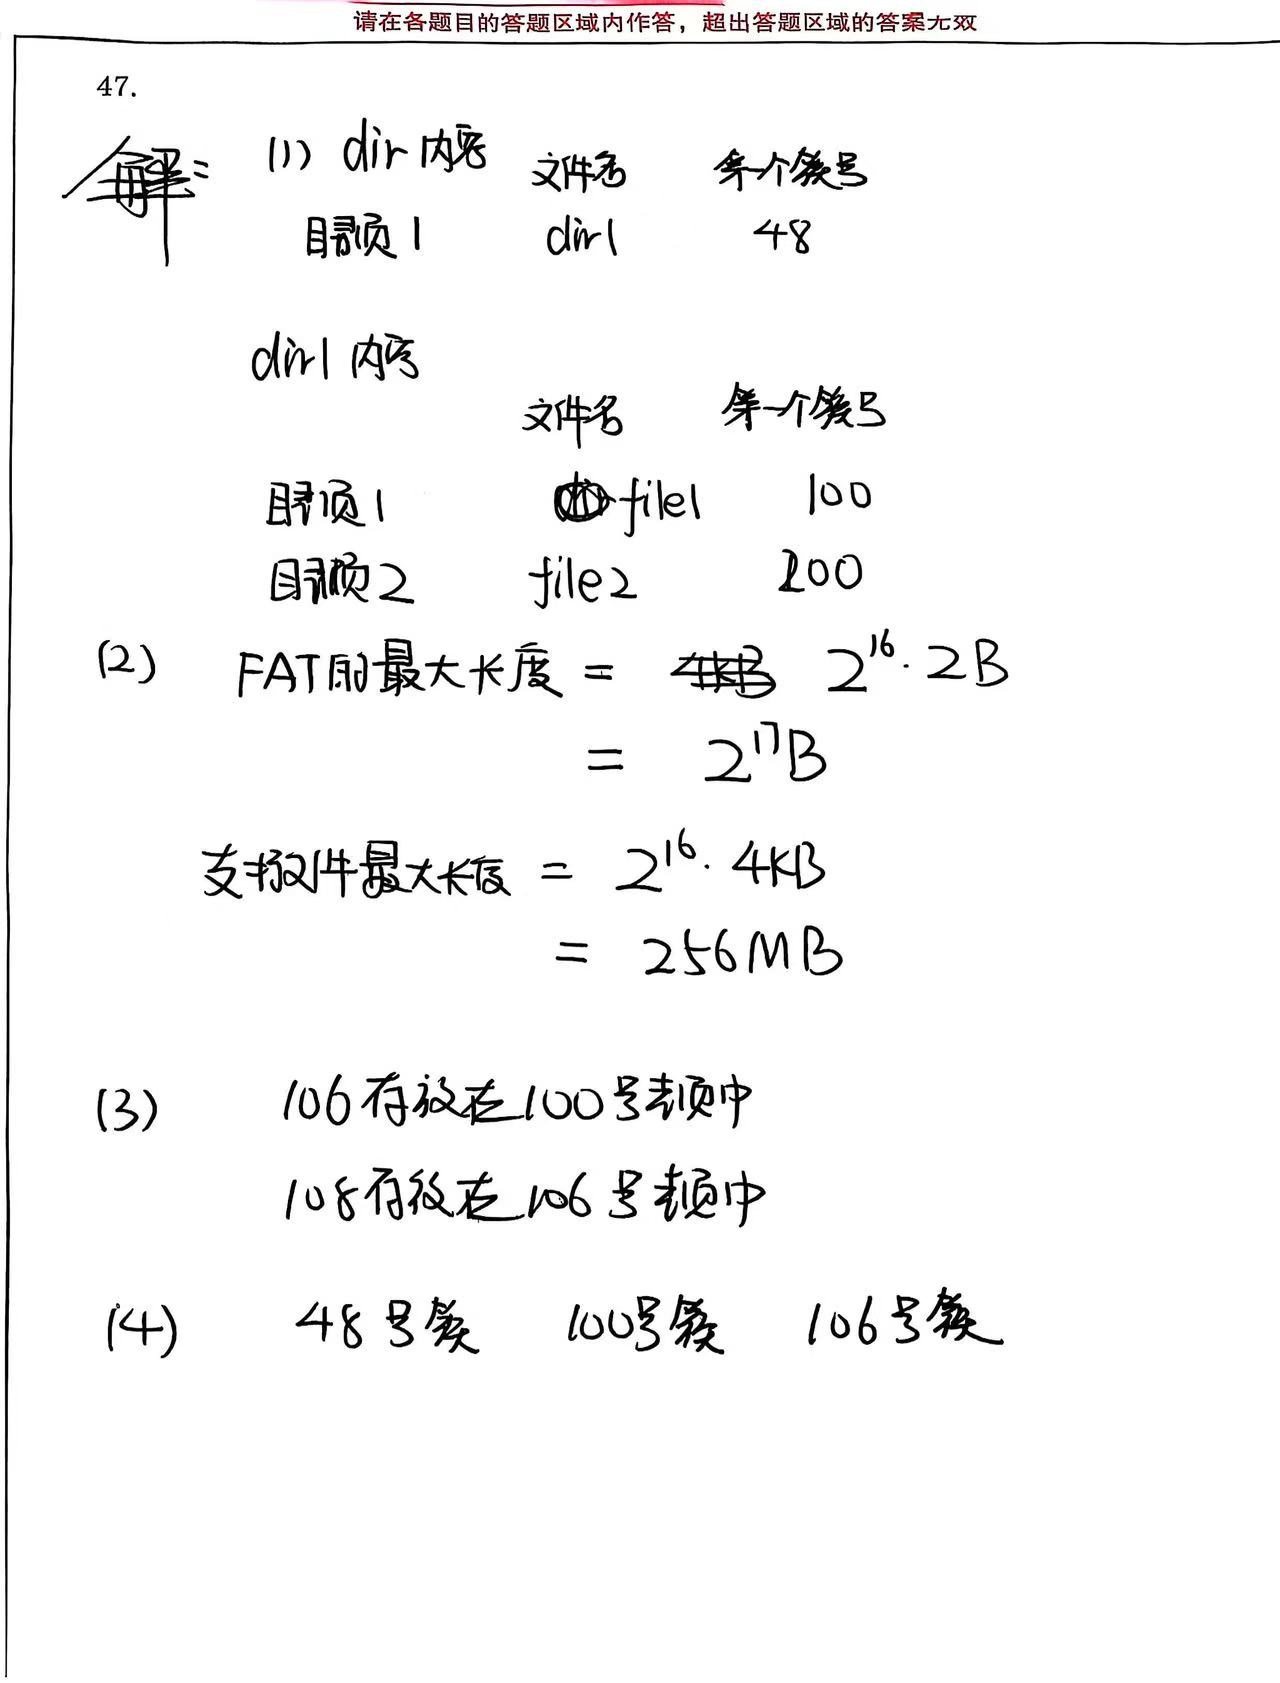 请在各题目的答题区域内作答，超出答题区域的答案无效
47.
解: (1) dir 内容
文件名 第一个簇号
目录项1 dir1 48
dir1 内容
文件名 第一个簇号
目录项1 file1 100
目录项2 file2 200
(2) FAT的最大长度 = 2^16 · 2B
= 2^17 B
支持文件最大长度 = 2^16 · 4KB
= 256MB
(3) 106存放在100号表项中
108存放在106号表项中
(4) 48号簇 100号簇 106号簇